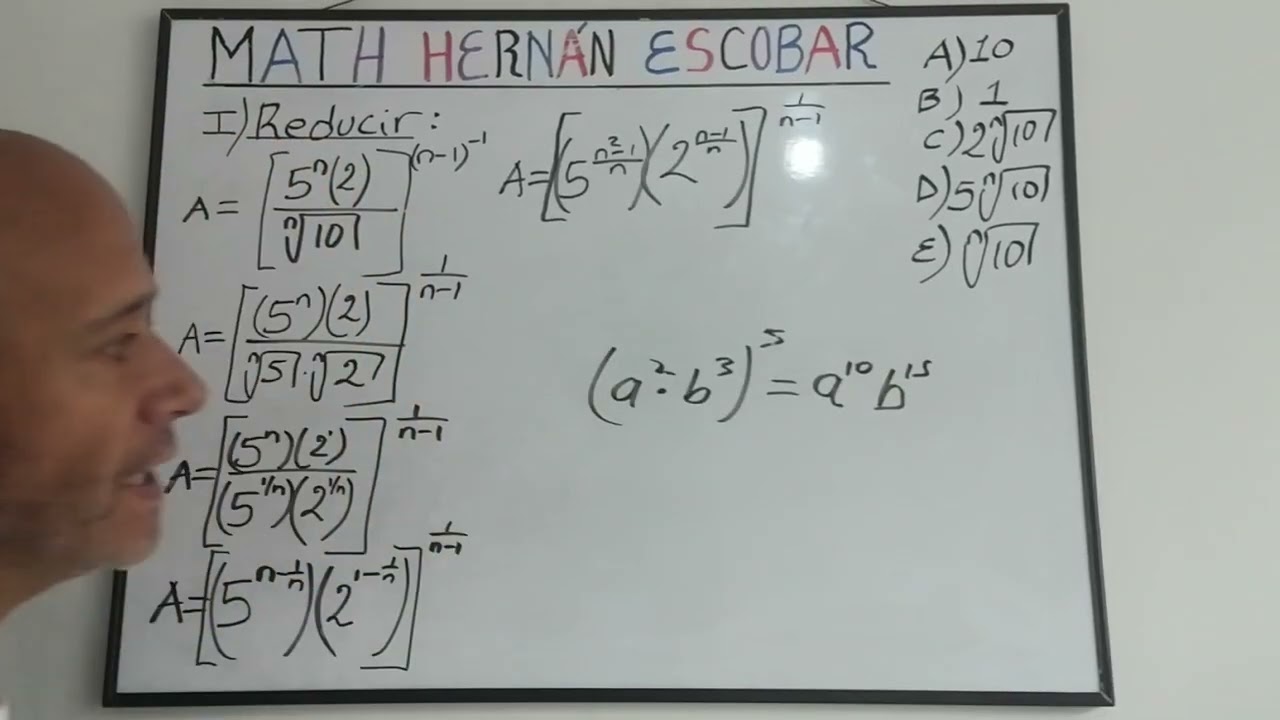 MATH HERNÁN ESCOBAR
I) Reducir:
A = [5ⁿ(2) / ⁿ√10]^(n-1)⁻¹
A = [(5ⁿ)(2) / ⁿ√5 · ⁿ√2]^(1/(n-1))
A = [(5ⁿ)(2¹) / (5^(1/n))(2^(1/n))]^(1/(n-1))
A = [(5^(n-1/n))(2^(1-1/n))]^(1/(n-1))
A = [(5^((n²-1)/n))(2^((n-1)/n))]^(1/(n-1))
(a²·b³)⁵ = a¹⁰b¹⁵
A) 10
B) 1
C) 2 ⁿ√10
D) 5 ⁿ√10
E) ⁿ√10